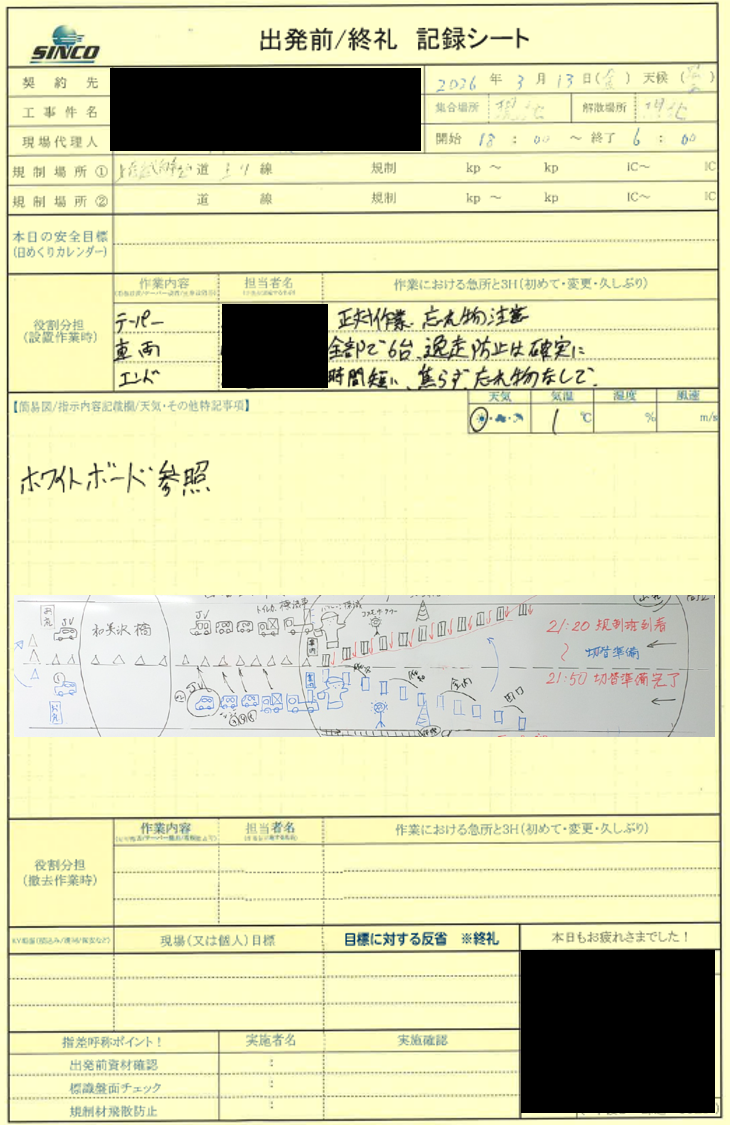 SINCO
出発前/終礼 記録シート
契約先
2026年 3月 13日(金) 天候( )
工事件名
集合場所 現地 解散場所 現地
現場代理人
開始 18:00 ～ 終了 6:00
規制場所① 道 上り 線 規制 kp ～ kp IC～ IC
規制場所② 道 線 規制 kp ～ kp IC～ IC
本日の安全目標
(日めくりカレンダー)
役割分担
(設置作業時)
作業内容 担当者名 作業における急所と3H(初めて・変更・久しぶり)
テーパー 正対作業、忘れ物注意
車両 全部で6台、逸走防止は確実に
エンド 時間短い、焦らず忘れ物なしで、
【簡易図/指示内容記載欄/天気・その他特記事項】
天気 気温 湿度 風速
1 ℃ % m/s
ホワイトボード参照
JV
初美沢橋
JV
トイレカー 標識車
21:20 規制班到着
切替準備
21:50 切替準備完了
①
JV
役割分担
(撤去作業時)
作業内容 担当者名 作業における急所と3H(初めて・変更・久しぶり)
現場(又は個人)目標 目標に対する反省 ※終礼 本日もお疲れさまでした！
指差呼称ポイント！ 実施者名 実施確認
出発前資材確認 :
標識盤面チェック :
規制材飛散防止 :